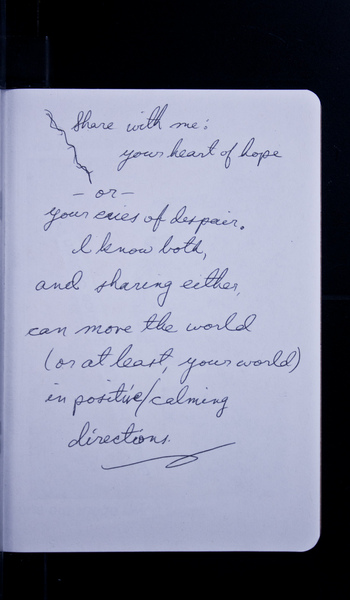 Share with me:
your heart of hope
- or -
your cries of despair.
I know both,
and sharing either,
can move the world
(or at least, your world)
in positive/calming
directions.